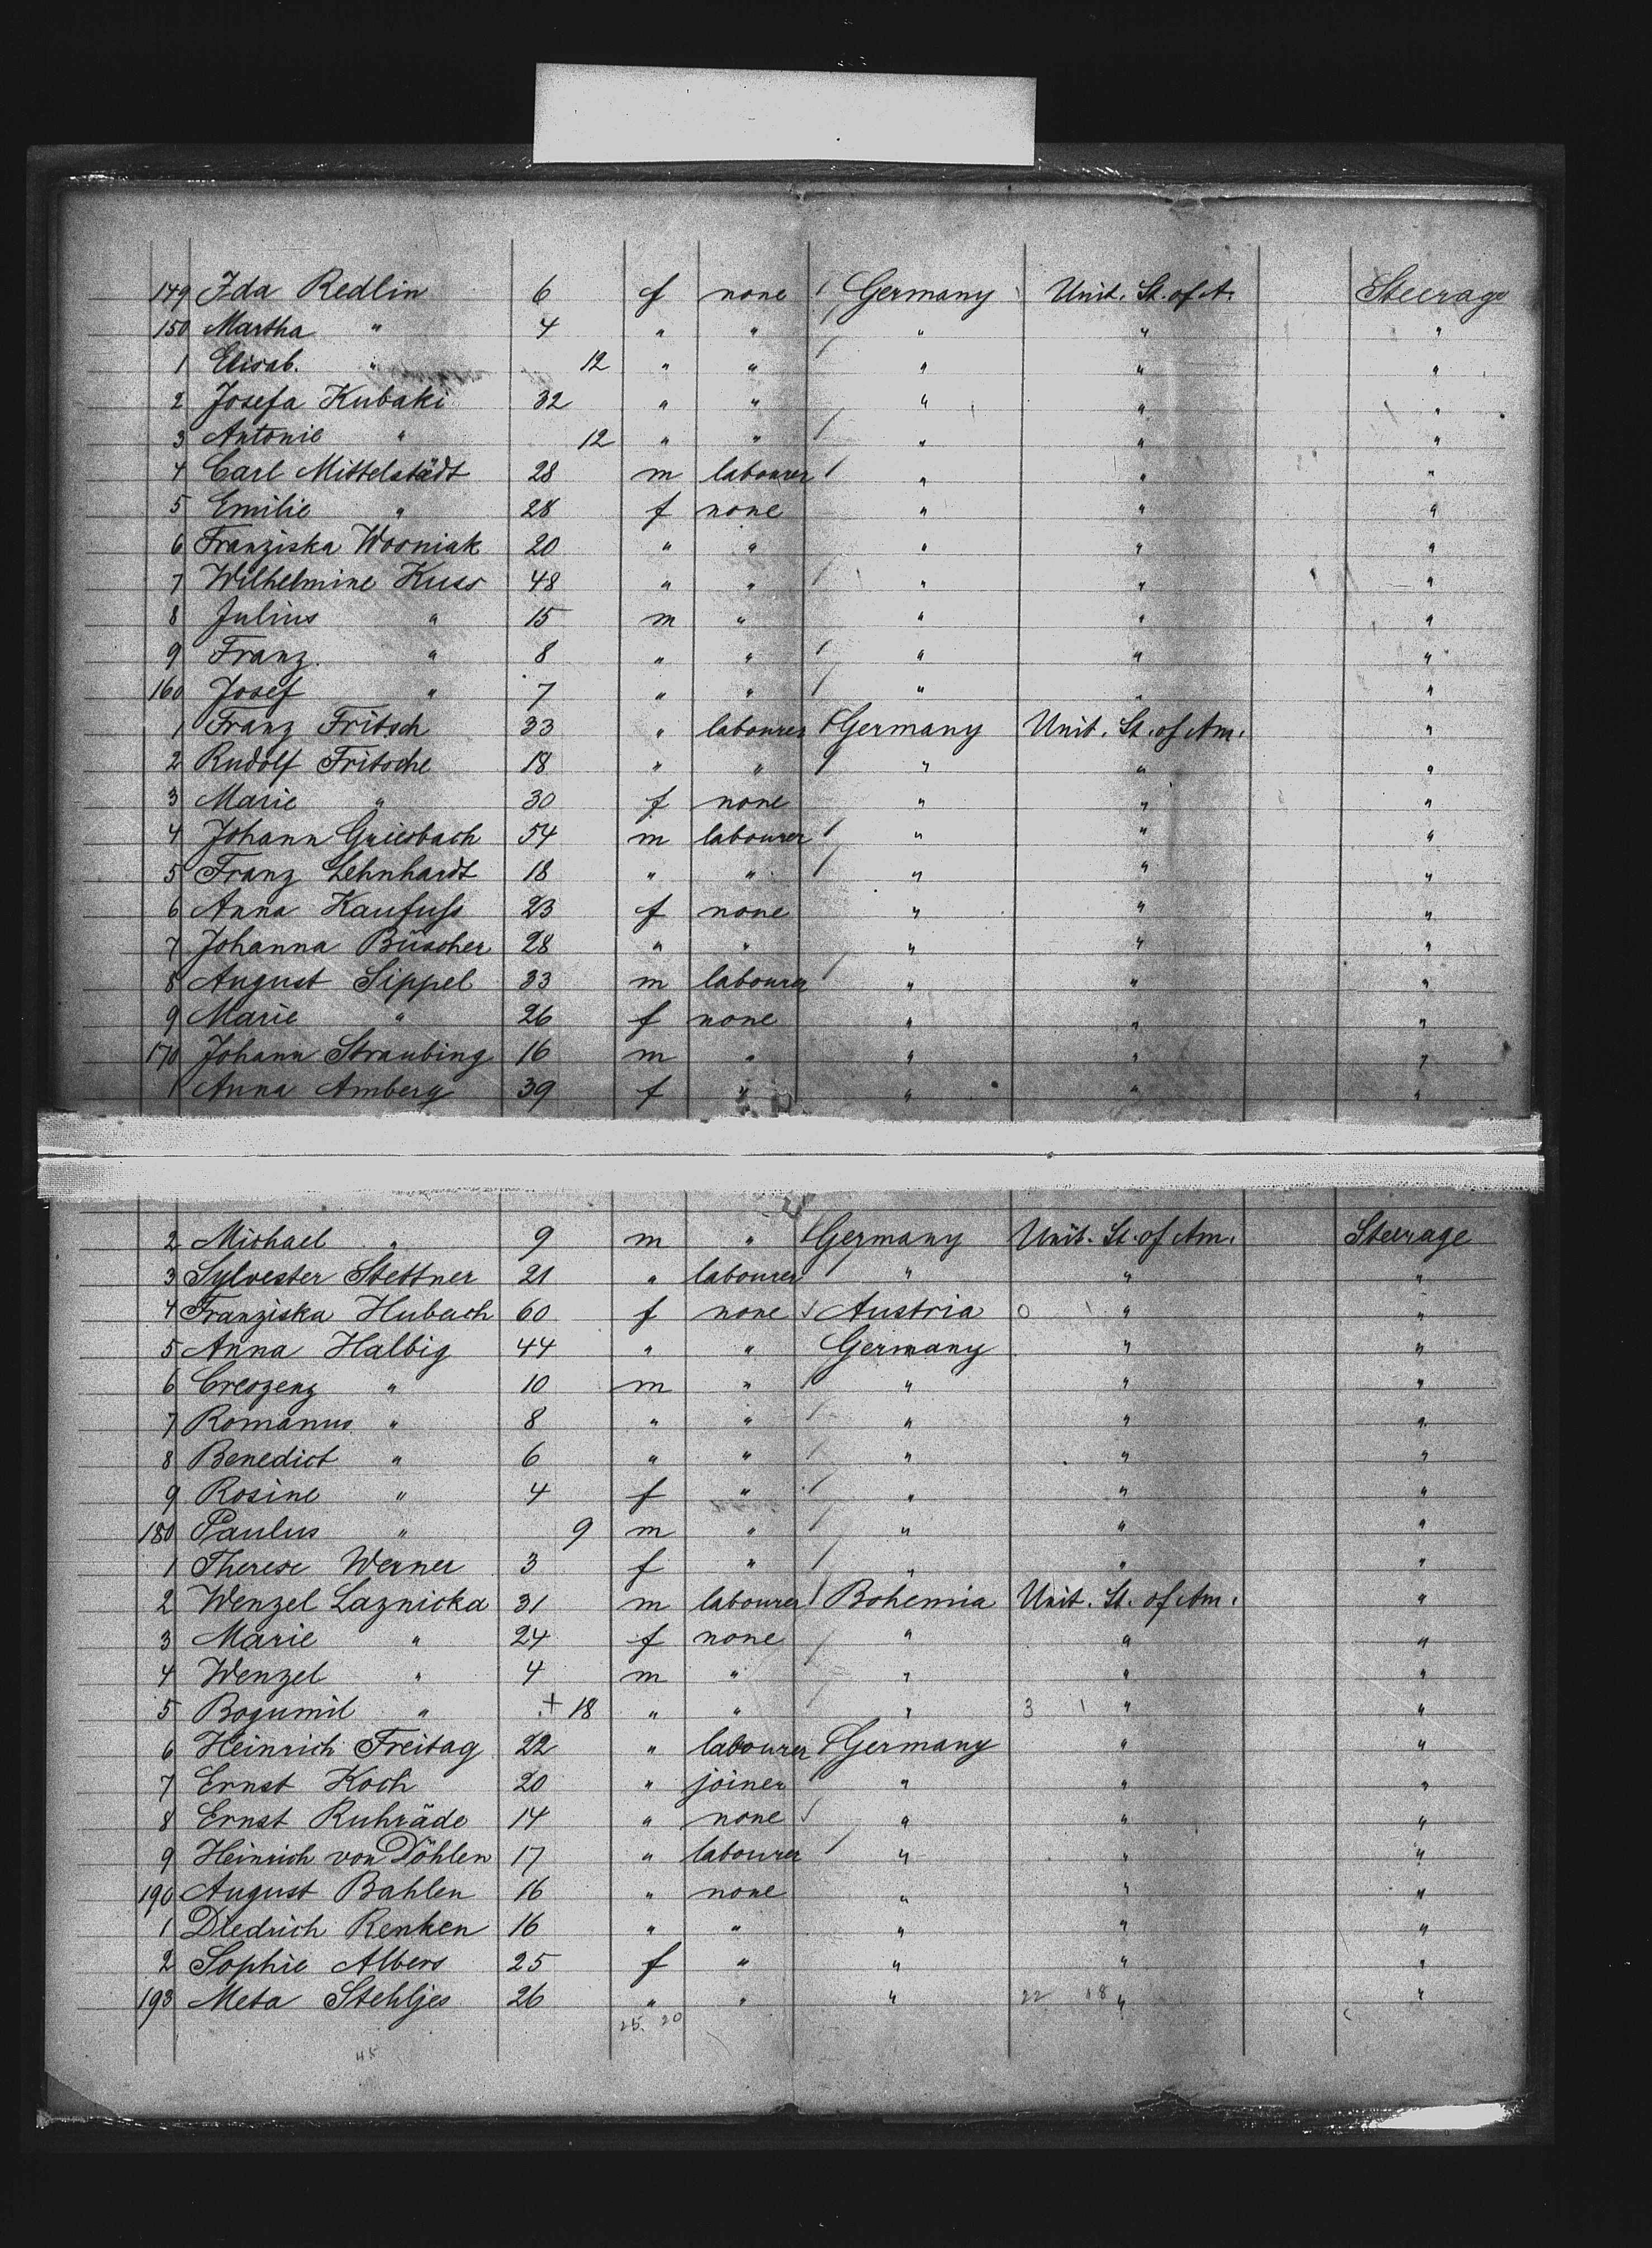 149 Ida Redlin 6 f none Germany Unit. St. of A. Steerage
150 Martha " 4 " " " " "
1 Elisab. " 12 " " " " "
2 Josefa Kubaki 32 " " " " "
3 Antonie " 12 " " " " "
4 Carl Mittelstädt 28 m labourer " " "
5 Emilie " 28 f none " " "
6 Franziska Wosniak 20 " " " " "
7 Wilhelmine Kuss 48 " " " " "
8 Julius " 15 m " " " "
9 Franz. " 8 " " " " "
160 Josef " 7 " " " " "
1 Franz Fritsch 33 " labourer Germany Unit. St. of Am. "
2 Rudolf Fritsche 18 " " " " "
3 Marie " 30 f none " " "
4 Johann Griesbach 54 m labourer " " "
5 Franz Lehnhardt 18 " " " " "
6 Anna Kaufuss 23 f none " " "
7 Johanna Büscher 28 " " " " "
8 August Sippel 33 m labourer " " "
9 Marie " 26 f none " " "
170 Johann Straubing 16 m " " " "
1 Anna Amberg 39 f " " " "
2 Michael " 9 m " Germany Unit. St. of Am. Steerage
3 Sylvester Stettner 21 " labourer " " "
4 Franziska Hubach 60 f none Austria 0 1 " "
5 Anna Halbig 44 " " Germany " "
6 Creszenz " 10 m " " " "
7 Romanus " 8 " " " " "
8 Benedict " 6 " " " " "
9 Rosine " 4 f " " " "
180 Paulus " 9 m " " " "
1 Therese Werner 3 f " " " "
2 Wenzel Laznicka 31 m labourer Bohemia Unit. St. of Am. "
3 Marie " 24 f none " " "
4 Wenzel " 4 m " " " "
5 Bogumil " + 18 " " " 3 1 " "
6 Heinrich Freitag 22 " labourer Germany " "
7 Ernst Koch 20 " joiner " " "
8 Ernst Ruhräde 14 " none " " "
9 Heinrich von Döhlen 17 " labourer " " "
190 August Bahlen 16 " none " " "
1 Diedrich Renken 16 " " " " "
2 Sophie Albers 25 f " " " "
193 Meta Stehljes 26 " " " 22 18 " "
25. 20
45